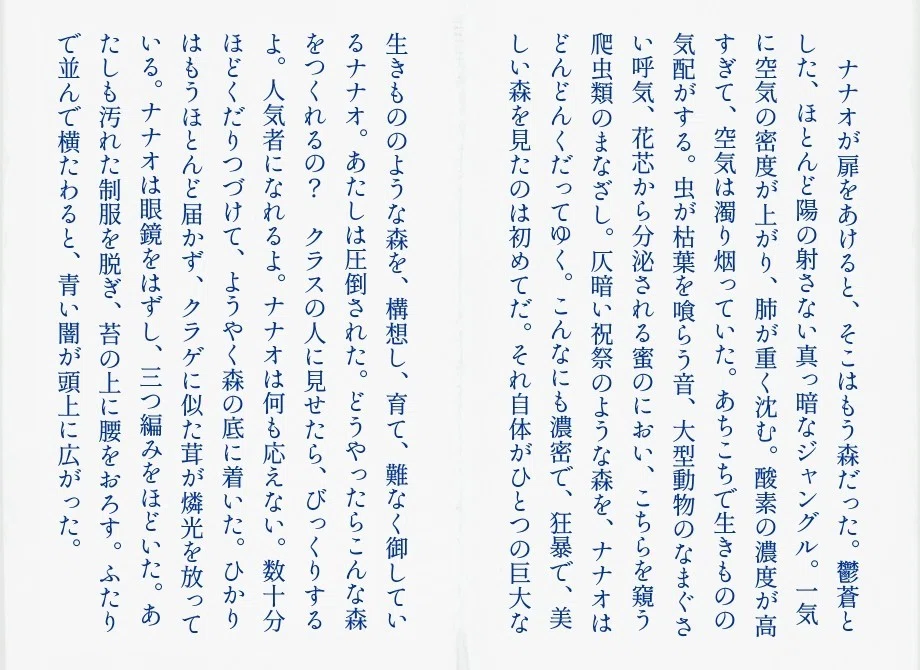 ナナオが扉をあけると、そこはもう森だった。鬱蒼と
した、ほとんど陽の射さない真っ暗なジャングル。一気
に空気の密度が上がり、肺が重く沈む。酸素の濃度が高
すぎて、空気は濁り烟っていた。あちこちで生きものの
気配がする。虫が枯葉を喰らう音、大型動物のなまぐさ
い呼気、花芯から分泌される蜜のにおい、こちらを窺う
爬虫類のまなざし。仄暗い祝祭のような森を、ナナオは
どんどんくだってゆく。こんなにも濃密で、狂暴で、美
しい森を見たのは初めてだ。それ自体がひとつの巨大な
生きもののような森を、構想し、育て、難なく御してい
るナナオ。あたしは圧倒された。どうやったらこんな森
をつくれるの？　クラスの人に見せたら、びっくりする
よ。人気者になれるよ。ナナオは何も応えない。数十分
ほどくだりつづけて、ようやく森の底に着いた。ひかり
はもうほとんど届かず、クラゲに似た茸が燐光を放って
いる。ナナオは眼鏡をはずし、三つ編みをほどいた。あ
たしも汚れた制服を脱ぎ、苔の上に腰をおろす。ふたり
で並んで横たわると、青い闇が頭上に広がった。